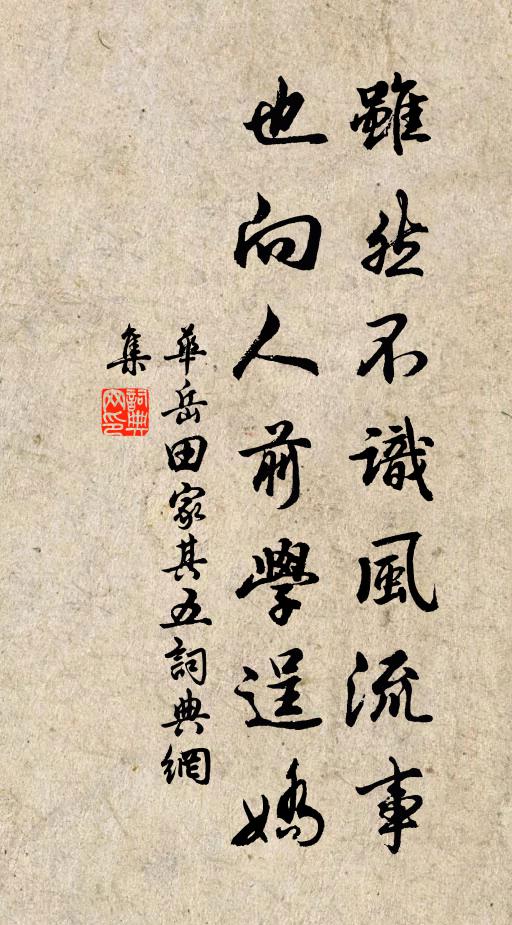 雖然不識風流事
也向人前學逞嬌
華岳田家其五詞典網
集
詞典網印